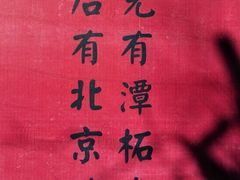 先有潭柘
后有北京